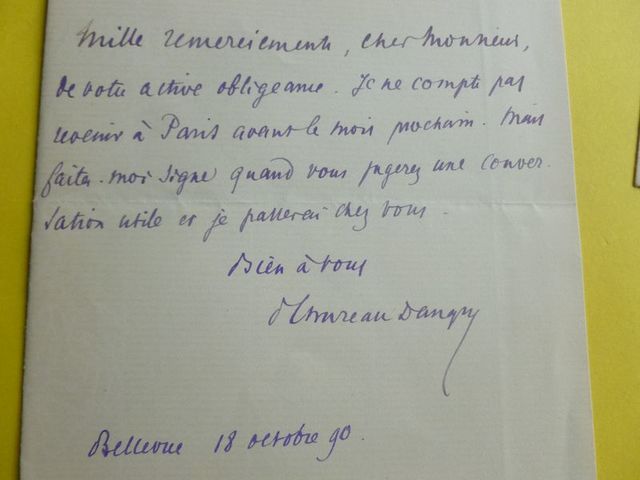 Mille remerciements, cher Monsieur,
de votre active obligeance. Je ne compte pas
revenir à Paris avant le mois prochain. Mais
faites-moi signe quand vous jugerez une conver-
sation utile et je passerai chez vous.
Bien à vous
Dangin
Bellevue 18 octobre 90.